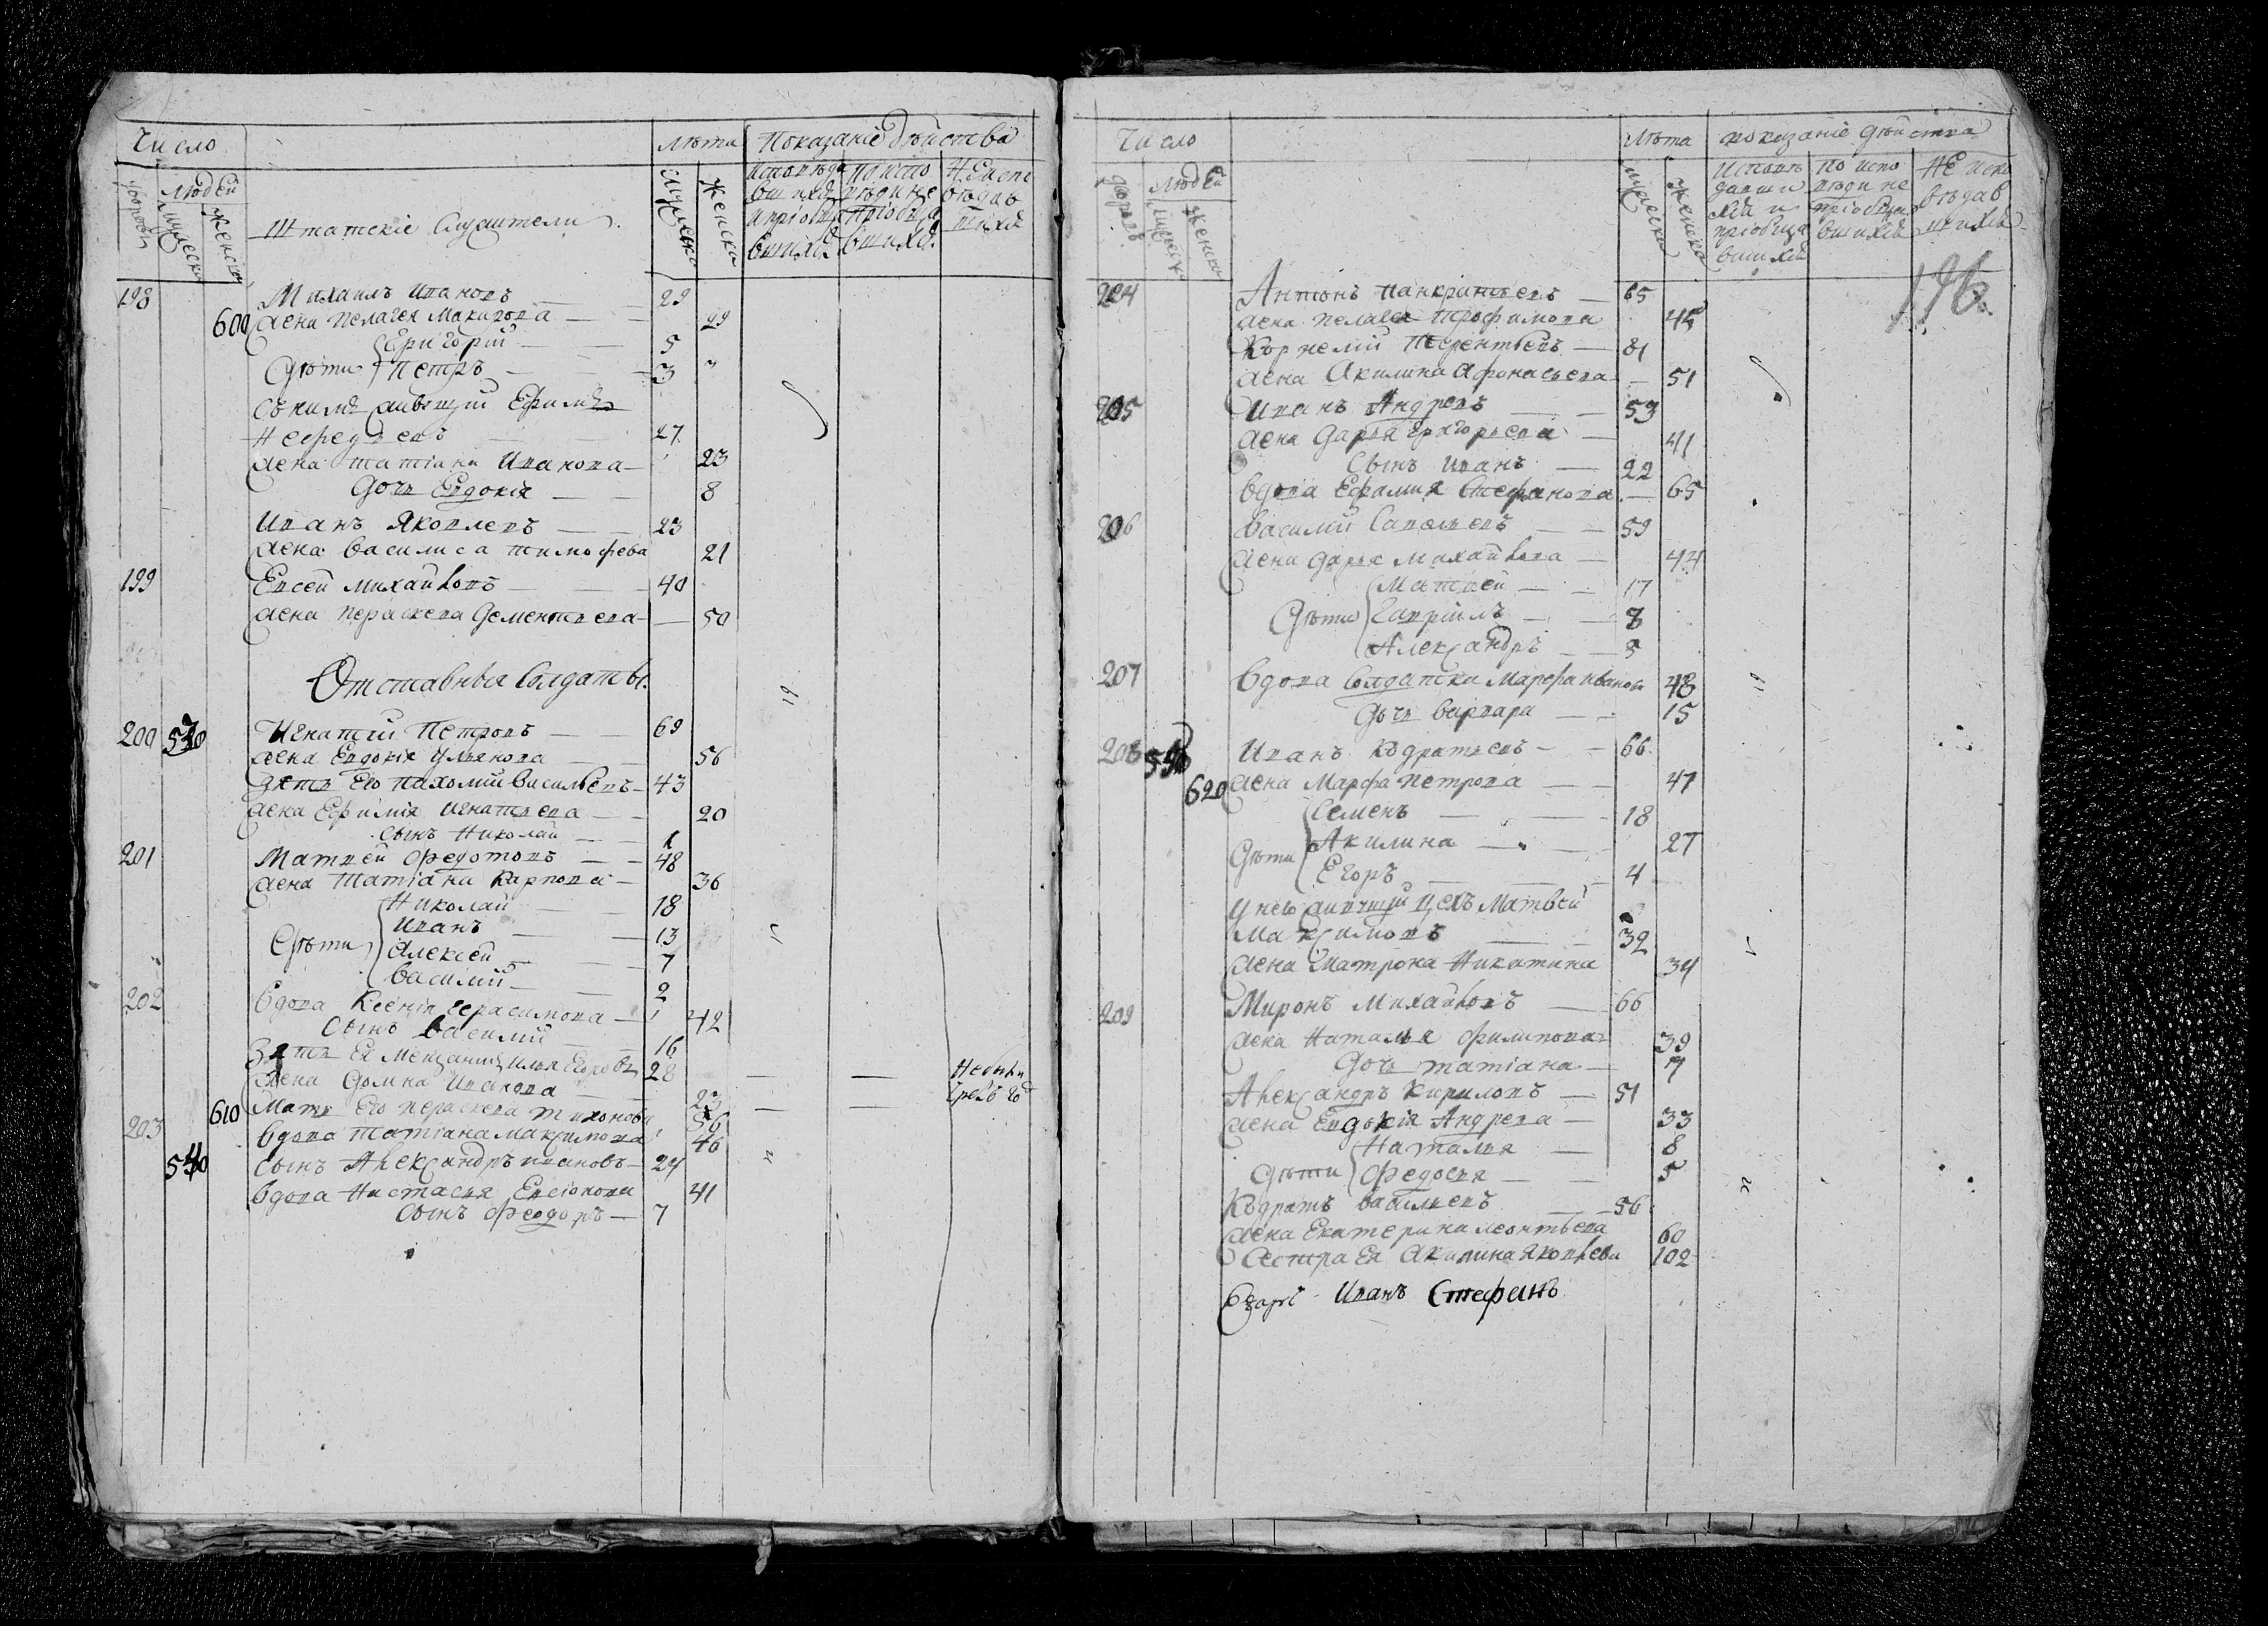 Число
Лѣта Показаніе дѣйства
дворовъ Людей мужеска женска
Штатскіе Служители
мужеска женска
исповѣда вшихся и пріобща вшихся
по испо вѣди не пріобща вшихся
Не испо вѣдав шихся
198 Михаилъ Ивановъ 29
600 жена Пелагея Макарова 29
Григорій 5
Дѣти Петръ 3
Съ нимъ живущій Ефимъ
Нефедьевъ 27
жена Татіана Иванова 23
дочь Евдокія 8
Иванъ Яковлевъ 23
жена Василиса Тимофева 21
199 Евсей Михайловъ 40
жена Параскева Дементьева 50
Отставныя Солдаты
200 530 Игнатій Петровъ 69
жена Евдокія Ульянова 56
зять Его Пахомій Васильевъ 43
жена Ефимія Игнатьева 20
сынъ Николай 1
201 Матвей Федотовъ 48
жена Татіана Карпова 36
Николай 18
Иванъ 13
Дѣти Алексей 7
Василий 2
202 Вдова Ксенія Герасимова 42
Сынъ Василий 16
Зять Ея Мещанинъ Илья Егоровъ 28
жена Домна Иванова 23
610 Мать Его Параскева Тихонова 56
203 Вдова Татіана Максимова 46
540 Сынъ Александръ Ивановъ 24
Вдова Настасья 41
Сынъ Феодоръ 7
Число
Лѣта показаніе дѣйства
дворовъ Людей мужеска женска
мужеска женска
исповѣ давши хся и пріобща вшихся
по испо вѣди не пріобща вшихся
Не испо вѣдав шихся
196
204 Антонъ Панкратьевъ 65
жена Пелагея Трофимова 45
Корнелий Терентьевъ 81
жена Акилина Афонасьева 51
205 Иванъ Андревъ 53
жена Дарья Григорьева 41
Сынъ Иванъ 22
Вдова Ефимия Стефанова 65
206 Василий Савельевъ 59
жена Дарья Михайлова 44
Матвей 17
Дѣти Гавріилъ 8
Александръ 3
207 Вдова Солдатка Марфа Иванова 48
Дочь Варвара 15
208 550 Иванъ Кодратьевъ 66
620 жена Марфа Петрова 47
Семенъ 18
Акилина 27
Дѣти Егоръ 4
У нею живущій Матвей
Максимовъ 32
жена Матрона Никитина 34
209 Миронъ Михайловъ 66
жена Наталья Филипова 39
Дочь Татіана 7
Александръ Кириловъ 51
жена Евдокія Андрева 33
Наталья 8
Дѣти Федосья 5
Кодратъ Васильевъ 56
жена Екатерина Леонтьева 60
Сестра Ея Акилина Яковлева 102
Иванъ Стефанъ